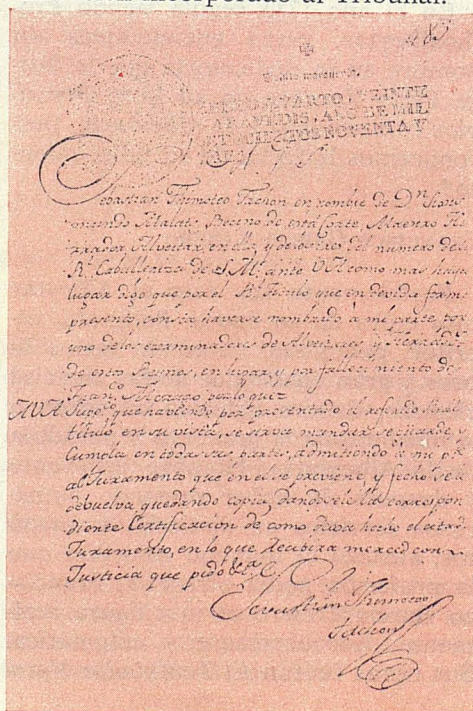 incorporado al Tribunal.
SELLO QVARTO, VEINTE
MARAVEDIS, AÑO DE MIL
SETECIENTOS NOVENTA Y
Sebastian Thimoteo Fichon en nombre de Dn.
Malats, Becino de esta Corte, Maestro He
rrador, y Alveitar en ella, y de los del numero de la
Rl. Caballeriza de S.M. ante VA como mas haya
lugar digo que por el Rl. Titulo que en devida forma
presento, consta haverse nombrado a mi parte por
uno de los examinadores de Alveitares y Herradores
de estos Reynos, en lugar, y por fallecimiento de
Franco. por lo que
AVA Suppco. que haviendo por presentado el referido Real
titulo en su vista, se sirva mandar se guarde, y
Cumpla en todas sus partes, admitiendo a mi pte
al Juramento que en el se previene, y fecho se le
debuelva, quedando copia, dandosele la correspon
diente Certificacion de como hecho el citado
Juramento, en lo que Recibira merced con
Justicia que pido &a
Sevastian Thimoteo
Fichon